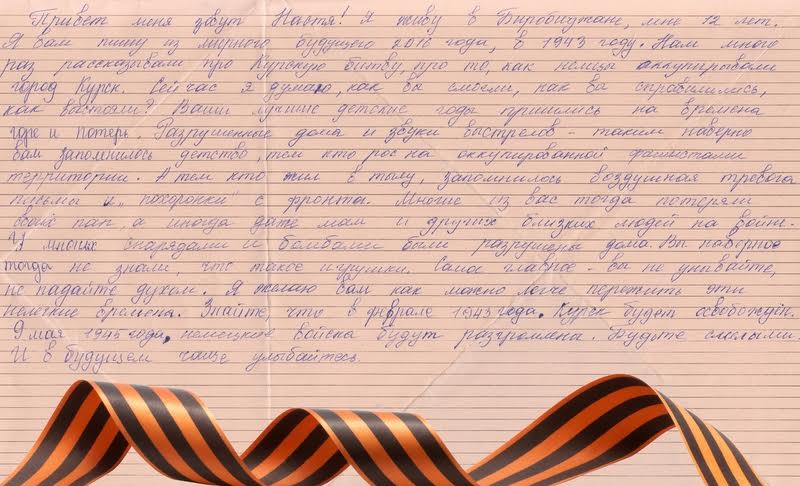 Привет меня зовут Настя! Я живу в Биробиджане, мне 12 лет.
Я вам пишу из мирного будущего 2016 года, в 1943 году. Нам много
раз рассказывали про Курскую битву, про то, как немцы аккупировали
город Курск. Сейчас я думаю, как вы смогли, как вы справились,
как выстояли? Ваши лучшие детские годы пришлись на времена
горе и потерь. Разрушенные дома и звуки выстрелов - таким наверно
вам запомнилось детство, тем кто рос на оккупированной фашистами
территории. А тем кто жил в тылу, запомнилось воздушная тревога
письма и „похоронки" с фронта. Многие из вас тогда потеряли
своих пап, а иногда даже мам и других близких людей на войне.
У многих снарядами и бомбами были разрушены дома. Вы наверное
тогда не знали, что такое игрушки. Самое главное - вы не унывайте,
не падайте духом. Я желаю вам как можно легче пережить эти
нелегкие времена. Знайте, что в феврале 1943 года, Курск будет освобождён.
9 мая 1945 года, немецкие войска будут разгромлена. Будьте смелыми.
И в будущем чаще улыбайтесь.